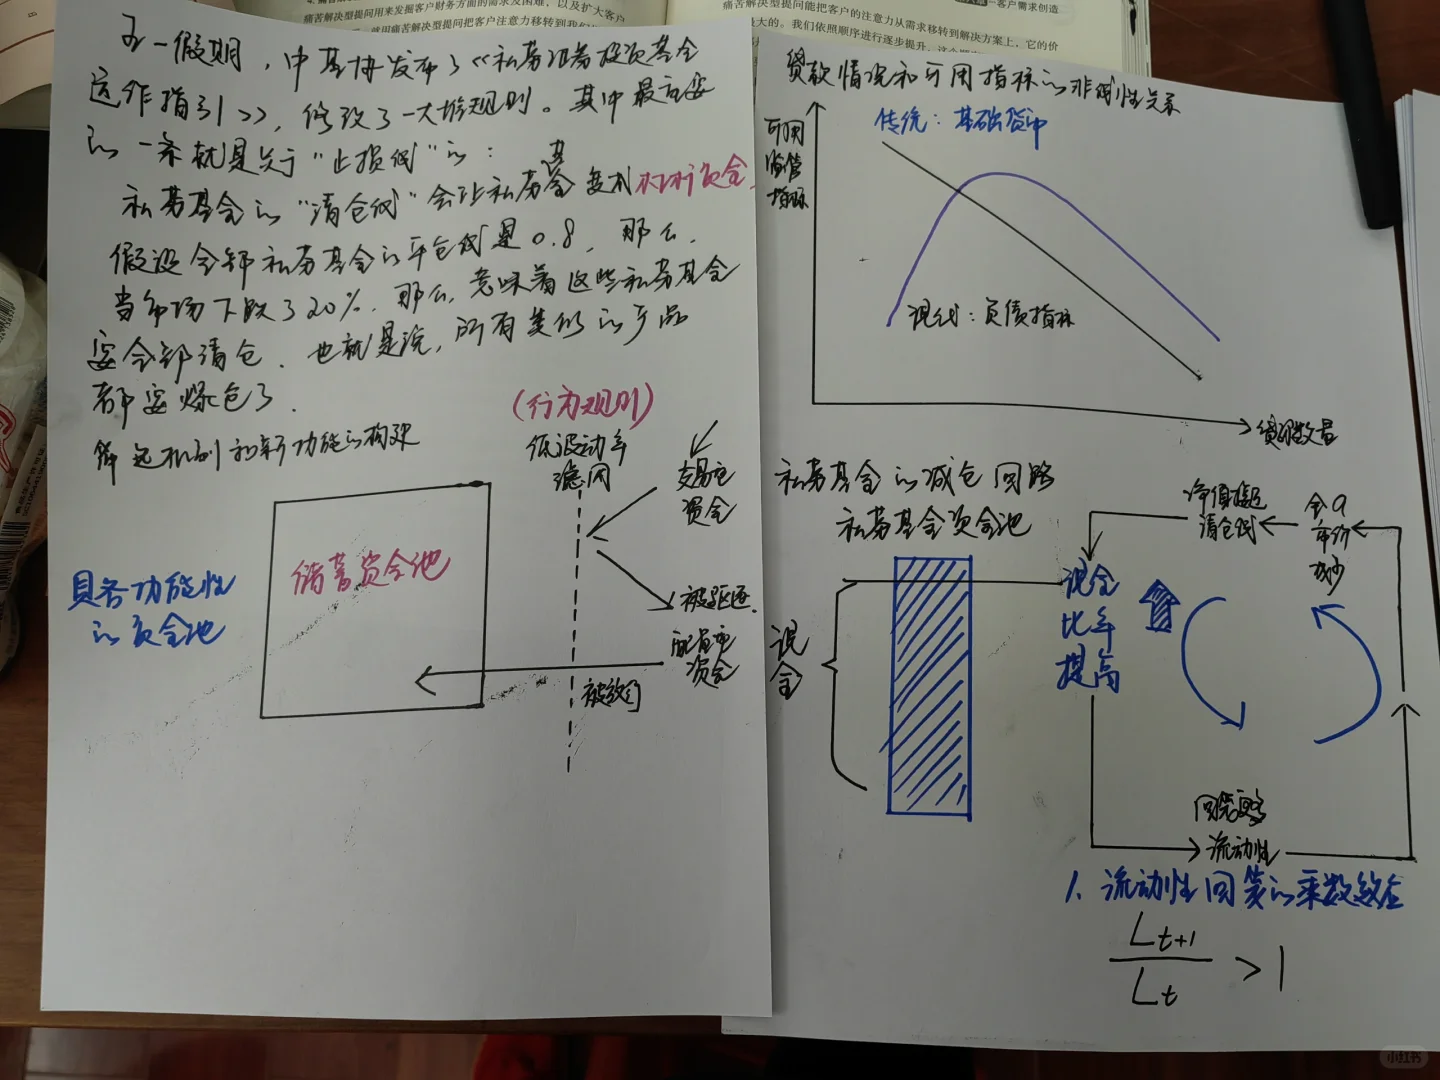 五一假期，中基协发布了《私募证券投资基金
运作指引》，修改了一大堆规则。其中最重要
的一条就是关于“止损线”的：
私募基金的“清仓线”会让私募基金变成杠杆资金.
假设全部私募基金的平仓线是0.8，那么，
当市场下跌了20%，那么，意味着这些私募基金
要全部清仓，也就是说，所有类似的产品
都要爆仓了.
和新功能的构建
(行为规则)
低波动率
滤网
交易型
资金
储蓄资金池
具备功能性
的资金池
被驱逐.
配置型
资金
被放行
贷款情况和可用指标的非线性关系
可用
监管
指标
传统：基础货币
现代：负债指标
贷款数量
私募基金的减仓回路
私募基金资金池
现
金
现金
比率
提高
净值接近
清仓线
市价
减少
流动性
1. 流动性回笼的乘数效应
Lt+1
Lt
>1
痛苦解决型提问用来发掘客户财务方面的需求及困难，以及扩大客户
痛苦解决型提问能把客户的注意力从需求移转到解决方案上，它的价
最大的。我们依照顺序进行逐步提升，
客户需求创造
小红书